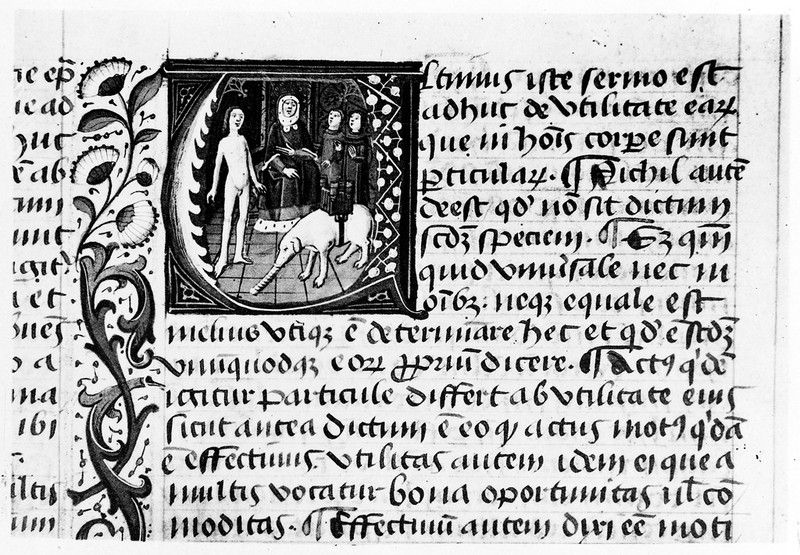 ıe ep̄
ıe ad
huc
ē ab
tum
unt
igit᷑
a et
ones
o a
ma
ibi
ultis
um
Ultimus iste sermo est
adhuc de vtilitate earꝝ
que in hoīs corpore sunt
ꝑticularꝝ. ¶ Nichil autē
deest qd' nō sit dictum
scdꝫ speciem. ¶ Eꝫ qm̄
quid vniuersale nec in
oībꝫ. neqꝫ equale est
melius vtiqꝫ ē determinare hec et qd' ē scdꝫ
vnūquodqꝫ eorꝝ ꝓpriū dicere. ¶ Actꝰ q'dē
igitur particule differt ab vtilitate eius
sicut antea dictum ē eo qꝫ actus motꝰ q'dā
ē effectiuus. vtilitas autem idem ei que a
multis vocatur bona oportunitas ul' cō
moditas. ¶ Effectiuū autem dixi eē moti